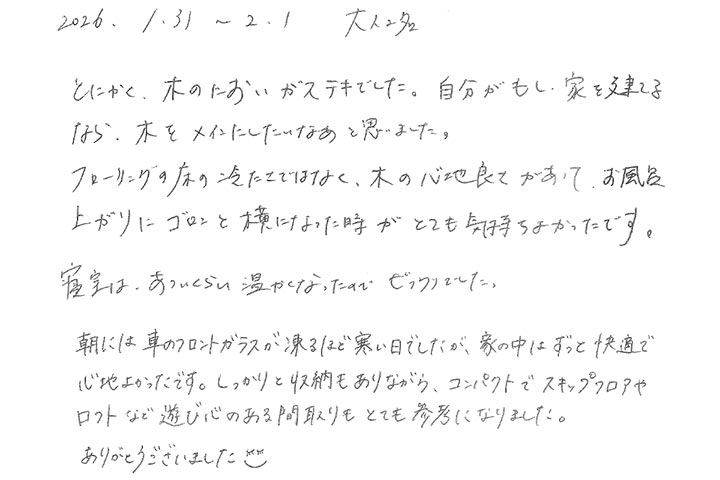 2026. 1.31 ~ 2.1 大人2名
とにかく、木のにおいがステキでした。自分がもし、家を建てる
なら、木をメインにしたいなあと思いました。
フローリングの床の冷たさではなく、木の心地良さがあって、お風呂
上がりにゴロンと横になった時がとても気持ちよかったです。
寝室は、あついくらい温かくなったのでビックリでした。
朝には車のフロントガラスが凍るほど寒い日でしたが、家の中はずっと快適で
心地よかったです。しっかりと収納もありながら、コンパクトでスキップフロアや
ロフトなど遊び心のある間取りもとても参考になりました。
ありがとうございました